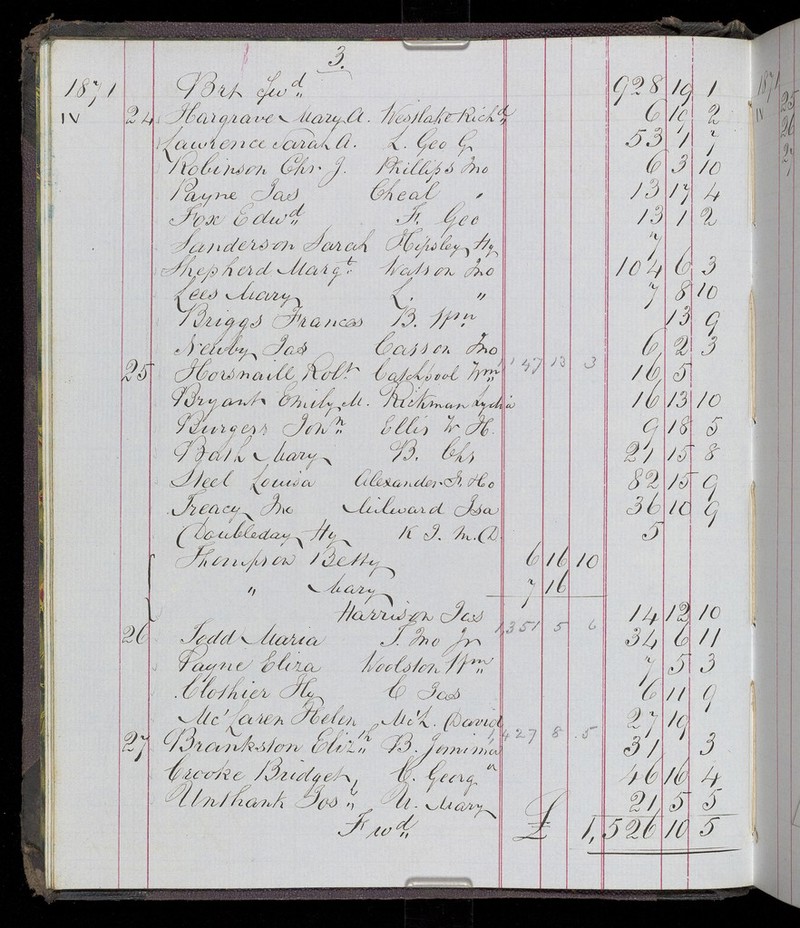 3.
1871 Brt Fwd 928 19 1
IV 24 Hargrave Mary A. Westlake Richd 6 19 2
Lawrence Sarah A. L. Geo G. 53 1 7
Robinson Chr. J. Phillips Jno 6 3 10
Payne Jas Cheal " 13 17 4
Fox Edwd F. Geo 13 1 2
Sanderson Sarah Hipsley Hy 7
Shepherd Margt. Watson Jno 104 6 3
Lees Mary L. " 7 8 10
Briggs Frances B. Wm 13 9
Newby Jas Casson Jno 6 2 3
1,147 13 3
25 Horsnaill Robt Catchpool Wm 16 5
Bryant Emily M. Rickman Lydia 16 13 10
Burgess Jonn Ellis W. H. 9 18 5
Bath Mary B. Chs 21 15 8
Steel Louisa Alexander 82 15 9
Treacy Jno Milward Isa 36 10 9
Doubleday Hy K. J. M. D. 5
Thompson Betty 6 16 10
" Mary 7 16
Harrison Jas 14 12 10
1,351 5 6
26 Todd Maria T. Jno Jr 34 6 11
Payne Eliza Woolston Wm 7 5 3
Clothier Hy C Jas 6 11 9
Mc'Laren Helen Mc'L. David 27 19
1,427 8 5
27 Brankston Elizth B. Jemima 31 3
Crooke Bridget C. Georgna 46 16 4
Unthank Jos U. Mary 21 5 5
Fwd £ 1,526 10 5
1871
IV 25
26
27